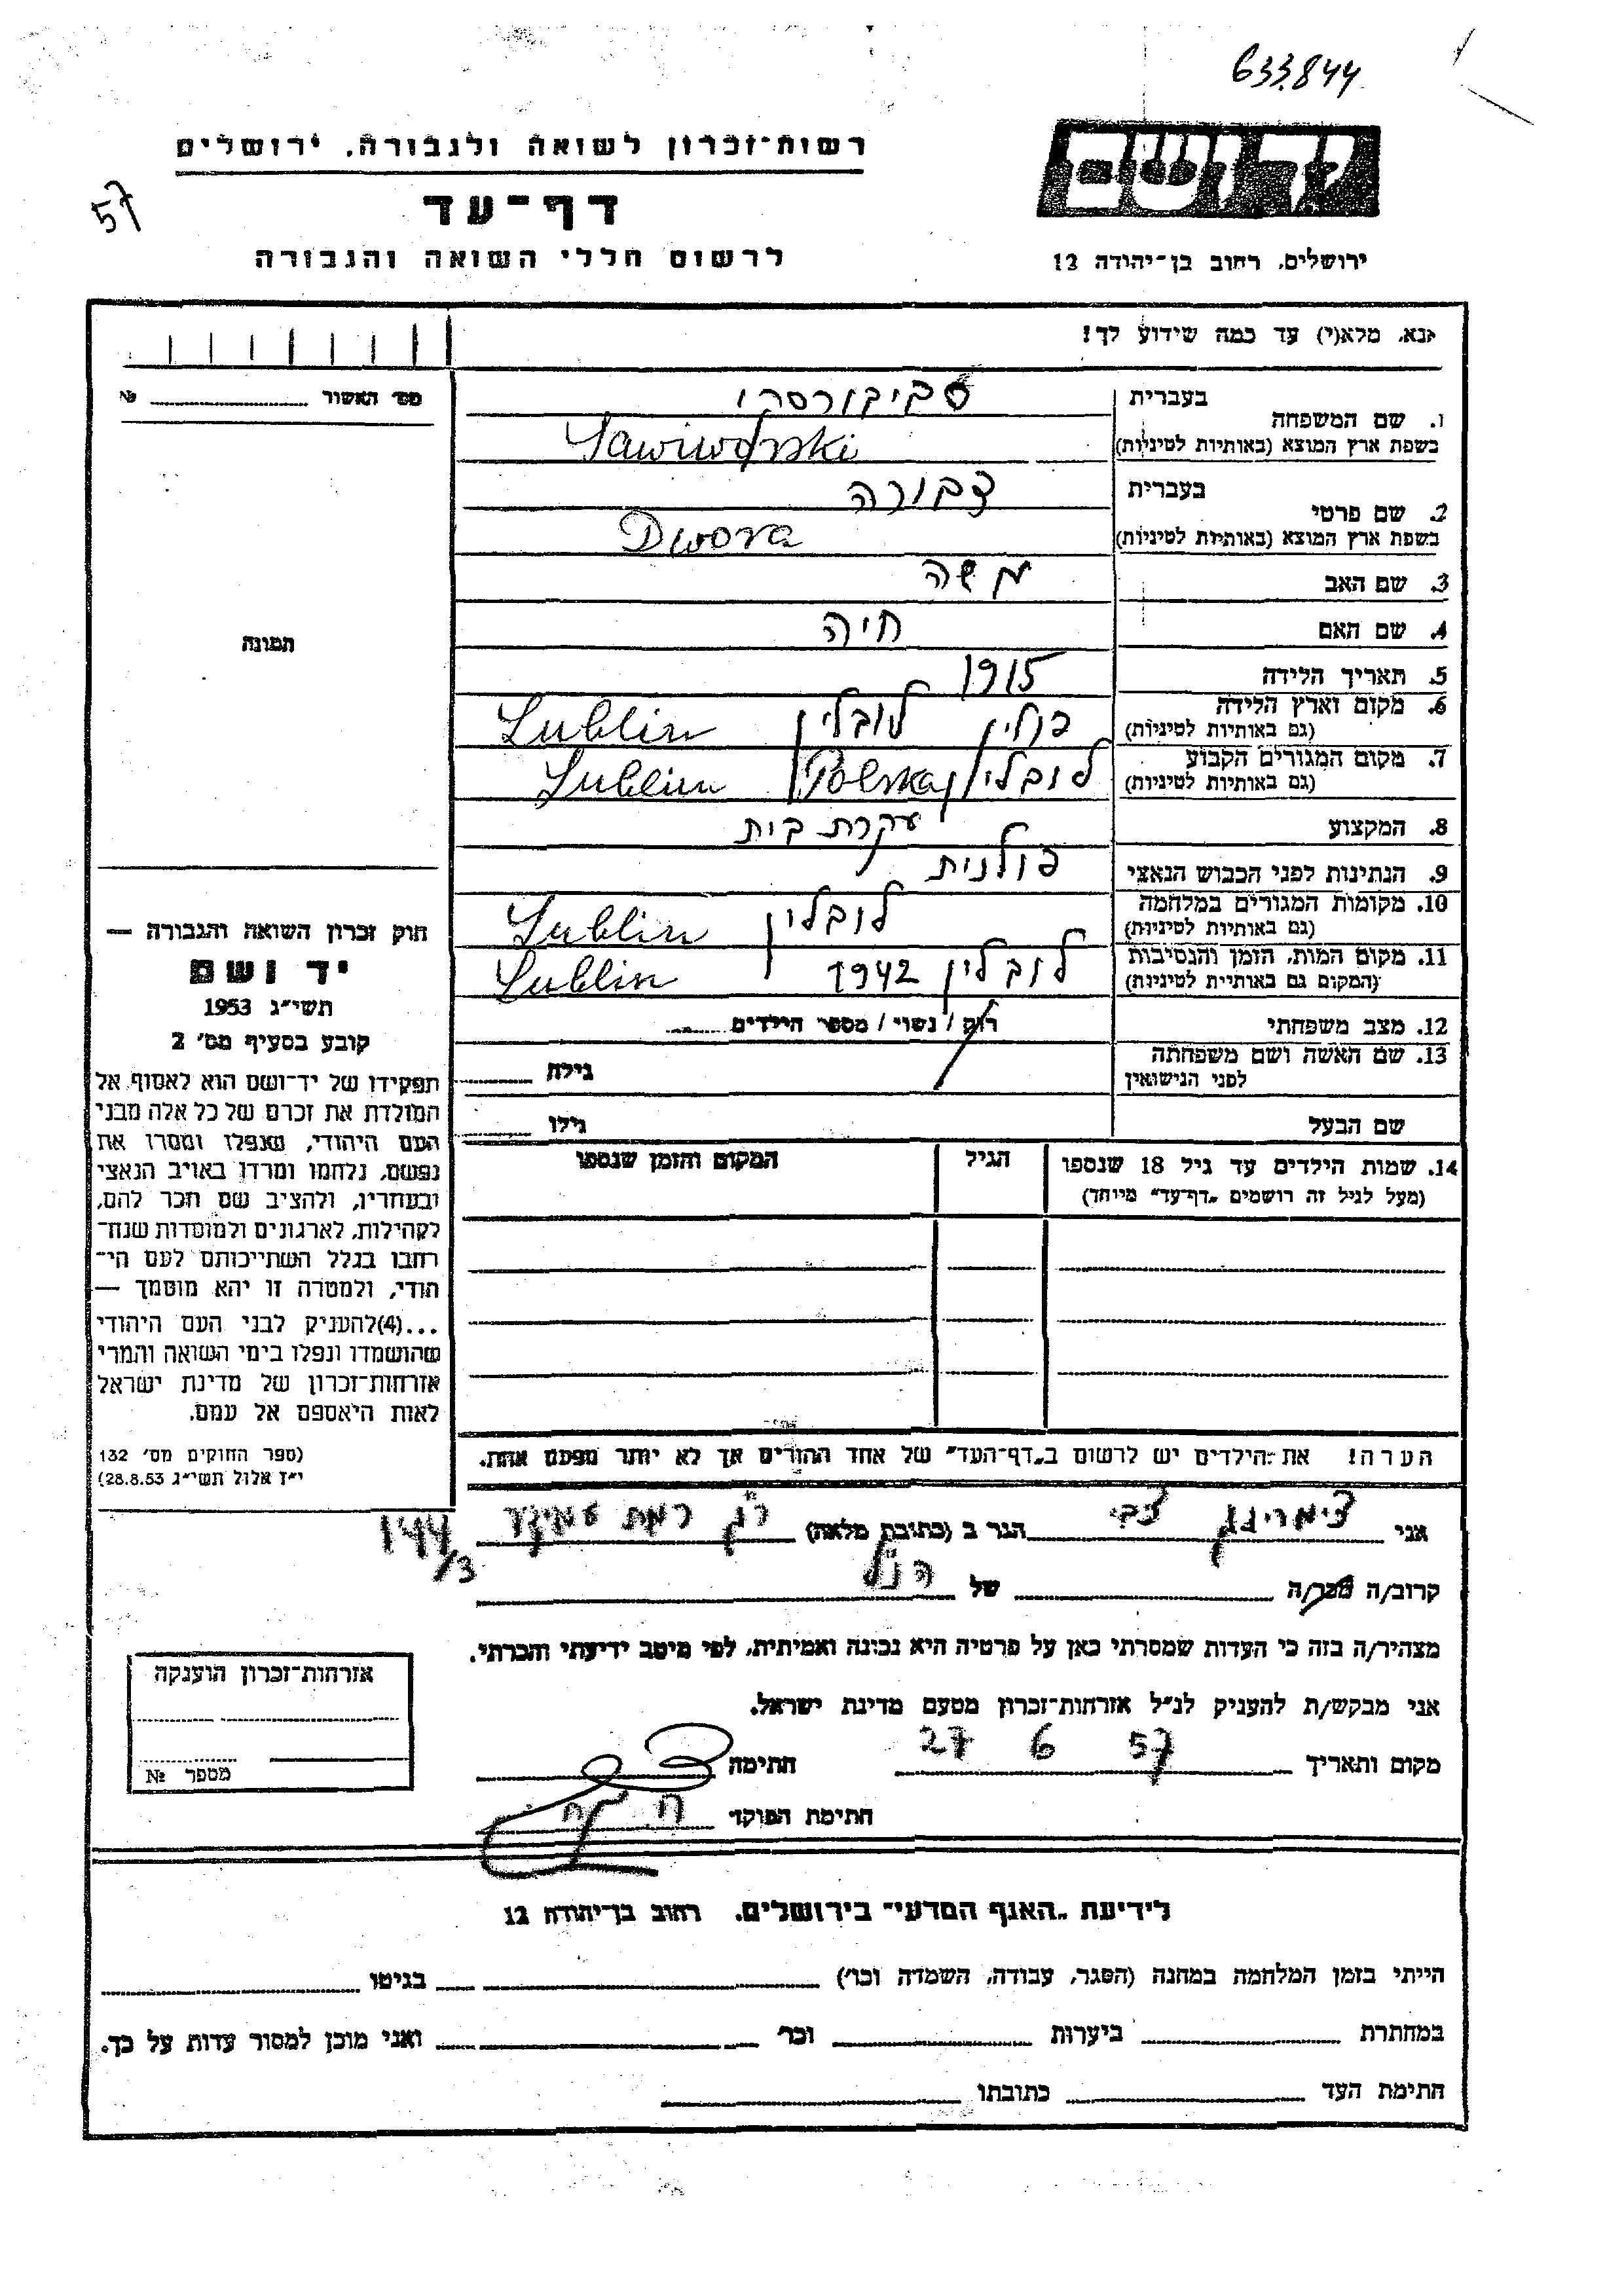 633.844
57
רשות־זכרון לשואה ולגבורה, ירושלים
דף־עד
לרשום חללי השואה והגבורה
יד ושם
ירושלים, רחוב בן־יהודה 12
נא, מלא(י) עד כמה שידוע לך!
מס׳ האשור № 
1. שם המשפחה
בעברית סביבורסקי
בשפת ארץ המוצא (באותיות לטיניות) Sawiworski
2. שם פרטי
בעברית דבורה
בשפת ארץ המוצא (באותיות לטיניות) Dwora
3. שם האב משה
4. שם האם חיה
5. תאריך הלידה 1915
6. מקום וארץ הלידה (גם באותיות לטיניות) פולין לובלין Lublin
7. מקום המגורים הקבוע (גם באותיות לטיניות) לובלין Polska Lublin
8. המקצוע עקרת בית
9. הנתינות לפני הכבוש הנאצי פולנית
10. מקומות המגורים במלחמה (גם באותיות לטיניות) לובלין Lublin
11. מקום המות, הזמן והנסיבות (המקום גם באותיות לטיניות) לובלין 1942 Lublin
12. מצב משפחתי רוק / נשוי / מספר הילדים
13. שם האשה ושם משפחתה לפני הנישואין גילה
שם הבעל גילו
14. שמות הילדים עד גיל 18 שנספו
(מעל לגיל זה רושמים „דף־עד״ מיוחד)
הגיל
המקום והזמן שנספו
הערה! את הילדים יש לרשום ב„דף־העד״ של אחד ההורים אך לא יותר מפעם אחת.
תמונה
חוק זכרון השואה והגבורה —
יד ושם
תשי״ג 1953
קובע בסעיף מס׳ 2
תפקידו של יד־ושם הוא לאסוף אל
המולדת את זכרם של כל אלה מבני
העם היהודי, שנפלו ומסרו את
נפשם, נלחמו ומרדו באויב הנאצי
ובעוזריו, ולהציב שם וזכר להם,
לקהילות, לארגונים ולמוסדות שנח־
רבו בגלל השתייכותם לעם הי־
הודי, ולמטרה זו יהא מוסמך —
...(4)להעניק לבני העם היהודי
שהושמדו ונפלו בימי השואה והמרי
אזרחות־זכרון של מדינת ישראל
לאות היאספם אל עמם.
(ספר החוקים מס׳ 132
י״ז אלול תשי״ג 28.8.53)
אני צבי הגר ב (כתובת מלאה) ר״ג רמת עמידר
144/3
קרוב/ה מכר/ה של הנ״ל
מצהיר/ה בזה כי העדות שמסרתי כאן על פרטיה היא נכונה ואמיתית, לפי מיטב ידיעתי והכרתי.
אני מבקש/ת להעניק לנ״ל אזרחות־זכרון מטעם מדינת ישראל.
מקום ותאריך 27 6 57 חתימה
חתימת הפוקד
אזרחות־זכרון הוענקה
מספר №
לידיעת „האגף המדעי״ בירושלים, רחוב בן־יהודה 12
הייתי בזמן המלחמה במחנה (הסגר, עבודה, השמדה וכו׳) בגיטו
במחתרת ביערות וכו׳ ואני מוכן למסור עדות על כך.
חתימת העד כתובתו